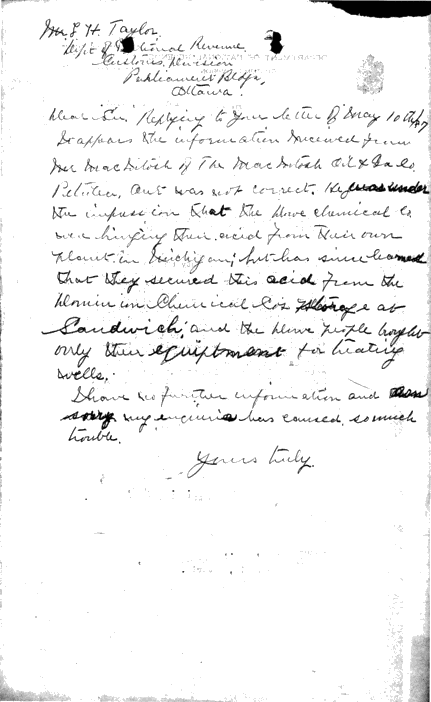 Mr. L. H. Taylor
Dept of National Revenue
Customs Division
Parliament Bldgs,
Ottawa.
Dear Sir, Replying to your letter of May 10th
It appears the information received from
Mr MacIntosh of The MacIntosh Oil & Gas Co.
Ont was not correct. He was under
the impression that the Dow chemical Co
were bringing their acid from their own
plant in Michigan, but has since learned
that they secured this acid from the
Dominion Chemical Co's storage at
Sandwich, and the Dow people bought
only their equiptment for treating
wells.
I have no further information and am
sorry my enquirie has caused so much
trouble.
Yours truly.